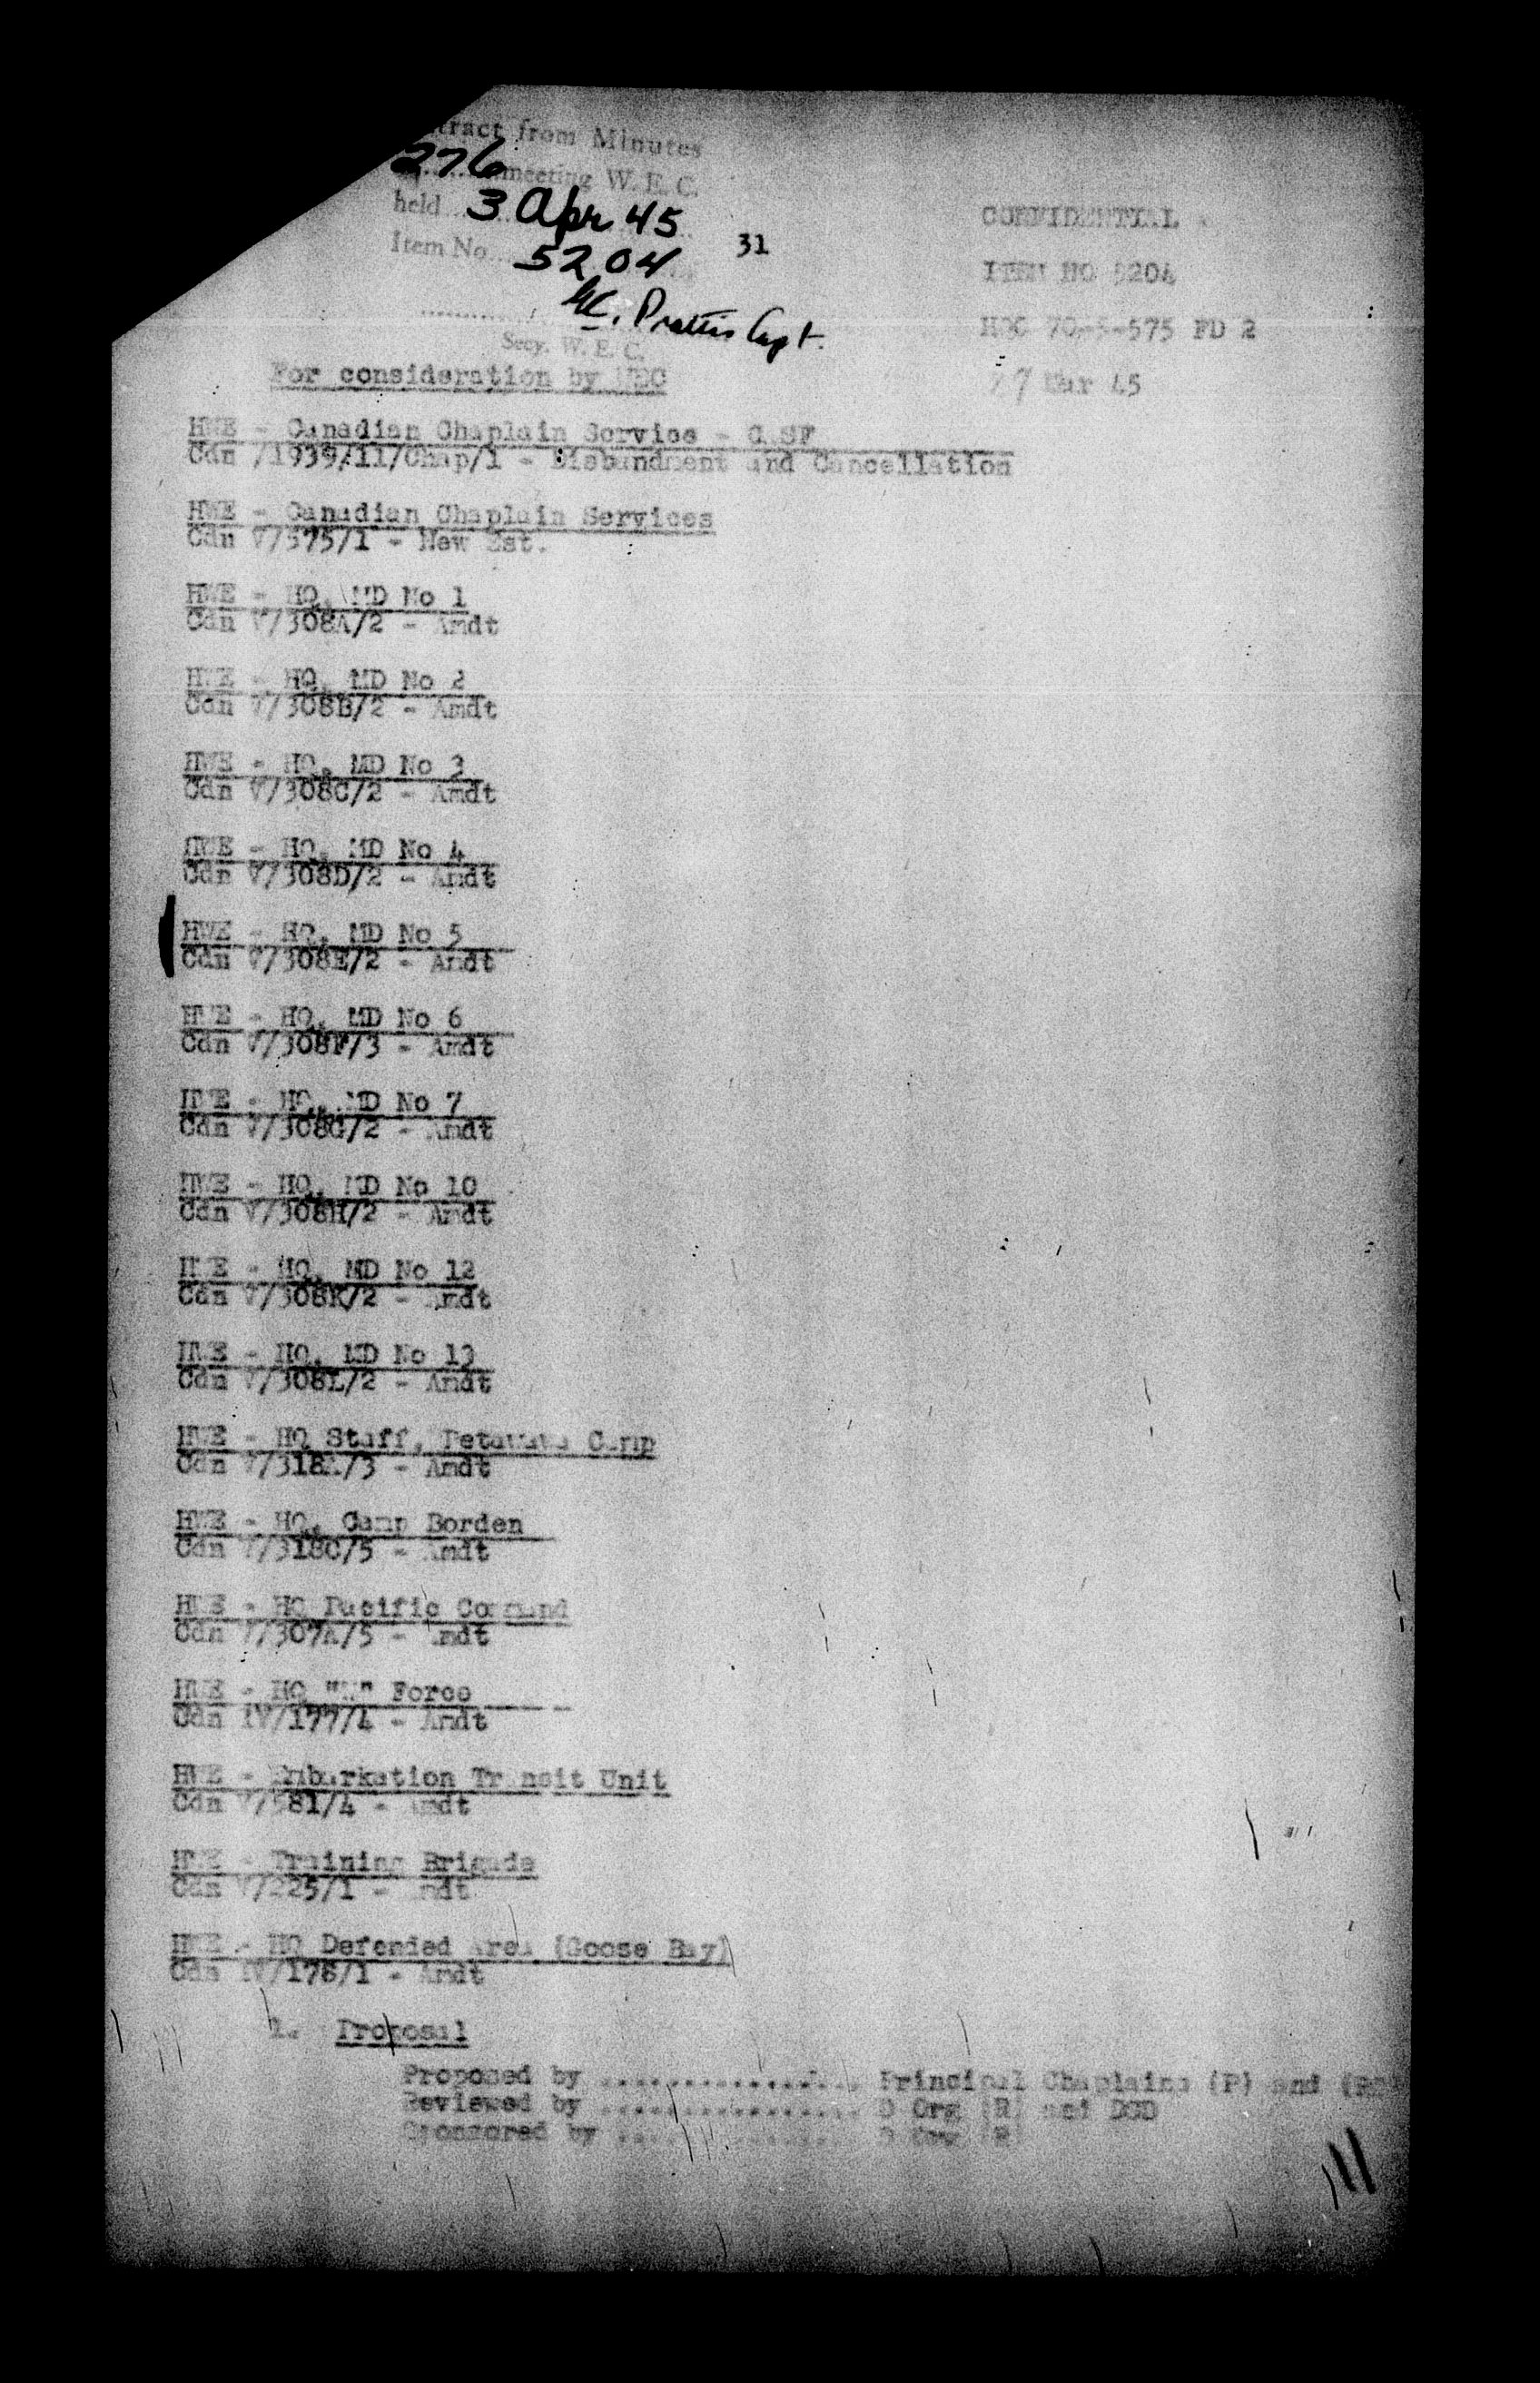 Extract from Minutes
276 meeting W. E. C.
held 3 Apr 45
31
Item No. 5204
Capt.
Secy. W. E. C.
CONFIDENTIAL
ITEM NO 5204
HQC 70-5-575 FD 2
27 Mar 45
For consideration by WEC
HWE - Canadian Chaplain Service - CASF
Cdn /1939/11/Chap/1 - Disbandment and Cancellation
HWE - Canadian Chaplain Services
Cdn V/575/1 - New Est.
HWE - HQ, MD No 1
Cdn V/308A/2 - Amdt
HWE - HQ, MD No 2
Cdn V/308B/2 - Amdt
HWE - HQ, MD No 3
Cdn V/308C/2 - Amdt
HWE - HQ, MD No 4
Cdn V/308D/2 - Amdt
HWE - HQ, MD No 5
Cdn V/308E/2 - Amdt
HWE - HQ, MD No 6
Cdn V/308F/3 - Amdt
HWE - HQ, MD No 7
Cdn V/308G/2 - Amdt
HWE - HQ, MD No 10
Cdn V/308H/2 - Amdt
HWE - HQ, MD No 12
Cdn V/308K/2 - Amdt
HWE - HQ, MD No 13
Cdn V/308L/2 - Amdt
HWE - HQ Staff, Petawawa Camp
Cdn V/318A/3 - Amdt
HWE - HQ, Camp Borden
Cdn V/318C/5 - Amdt
HWE - HQ Pacific Command
Cdn V/307A/5 - Amdt
HWE - HQ Force
Cdn IV/177/4 - Amdt
HWE - Embarkation Transit Unit
Cdn V/581/4 - Amdt
HWE - Training Brigade
Cdn V/225/1 - Amdt
HWE - HQ Defended Area (Goose Bay)
Cdn IV/178/1 - Amdt
1. Proposal
Proposed by ................. Principal Chaplains (P) and
Reviewed by ................. D Org (R) and DSD
Sponsored by ................. D Org (R)